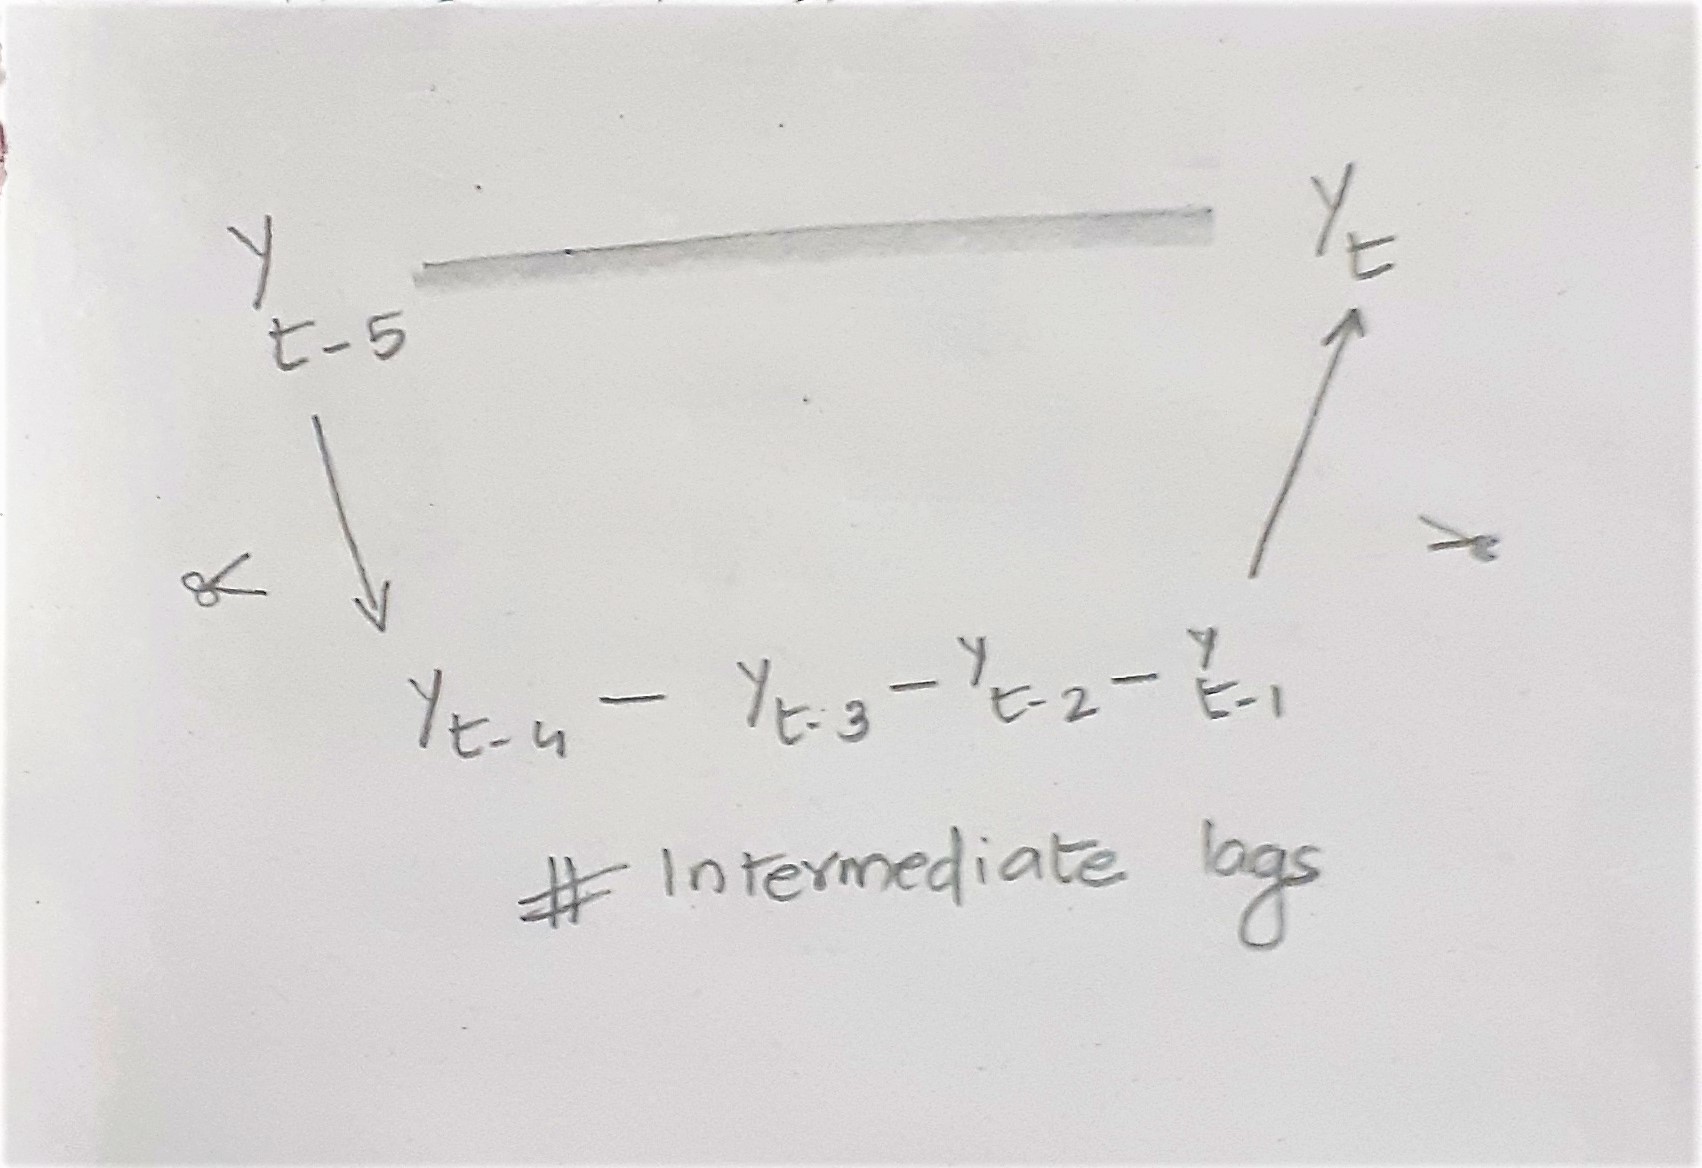 Y t-5 Yt
Yt-4 - Yt-3 - Yt-2 - Yt-1
# Intermediate lags